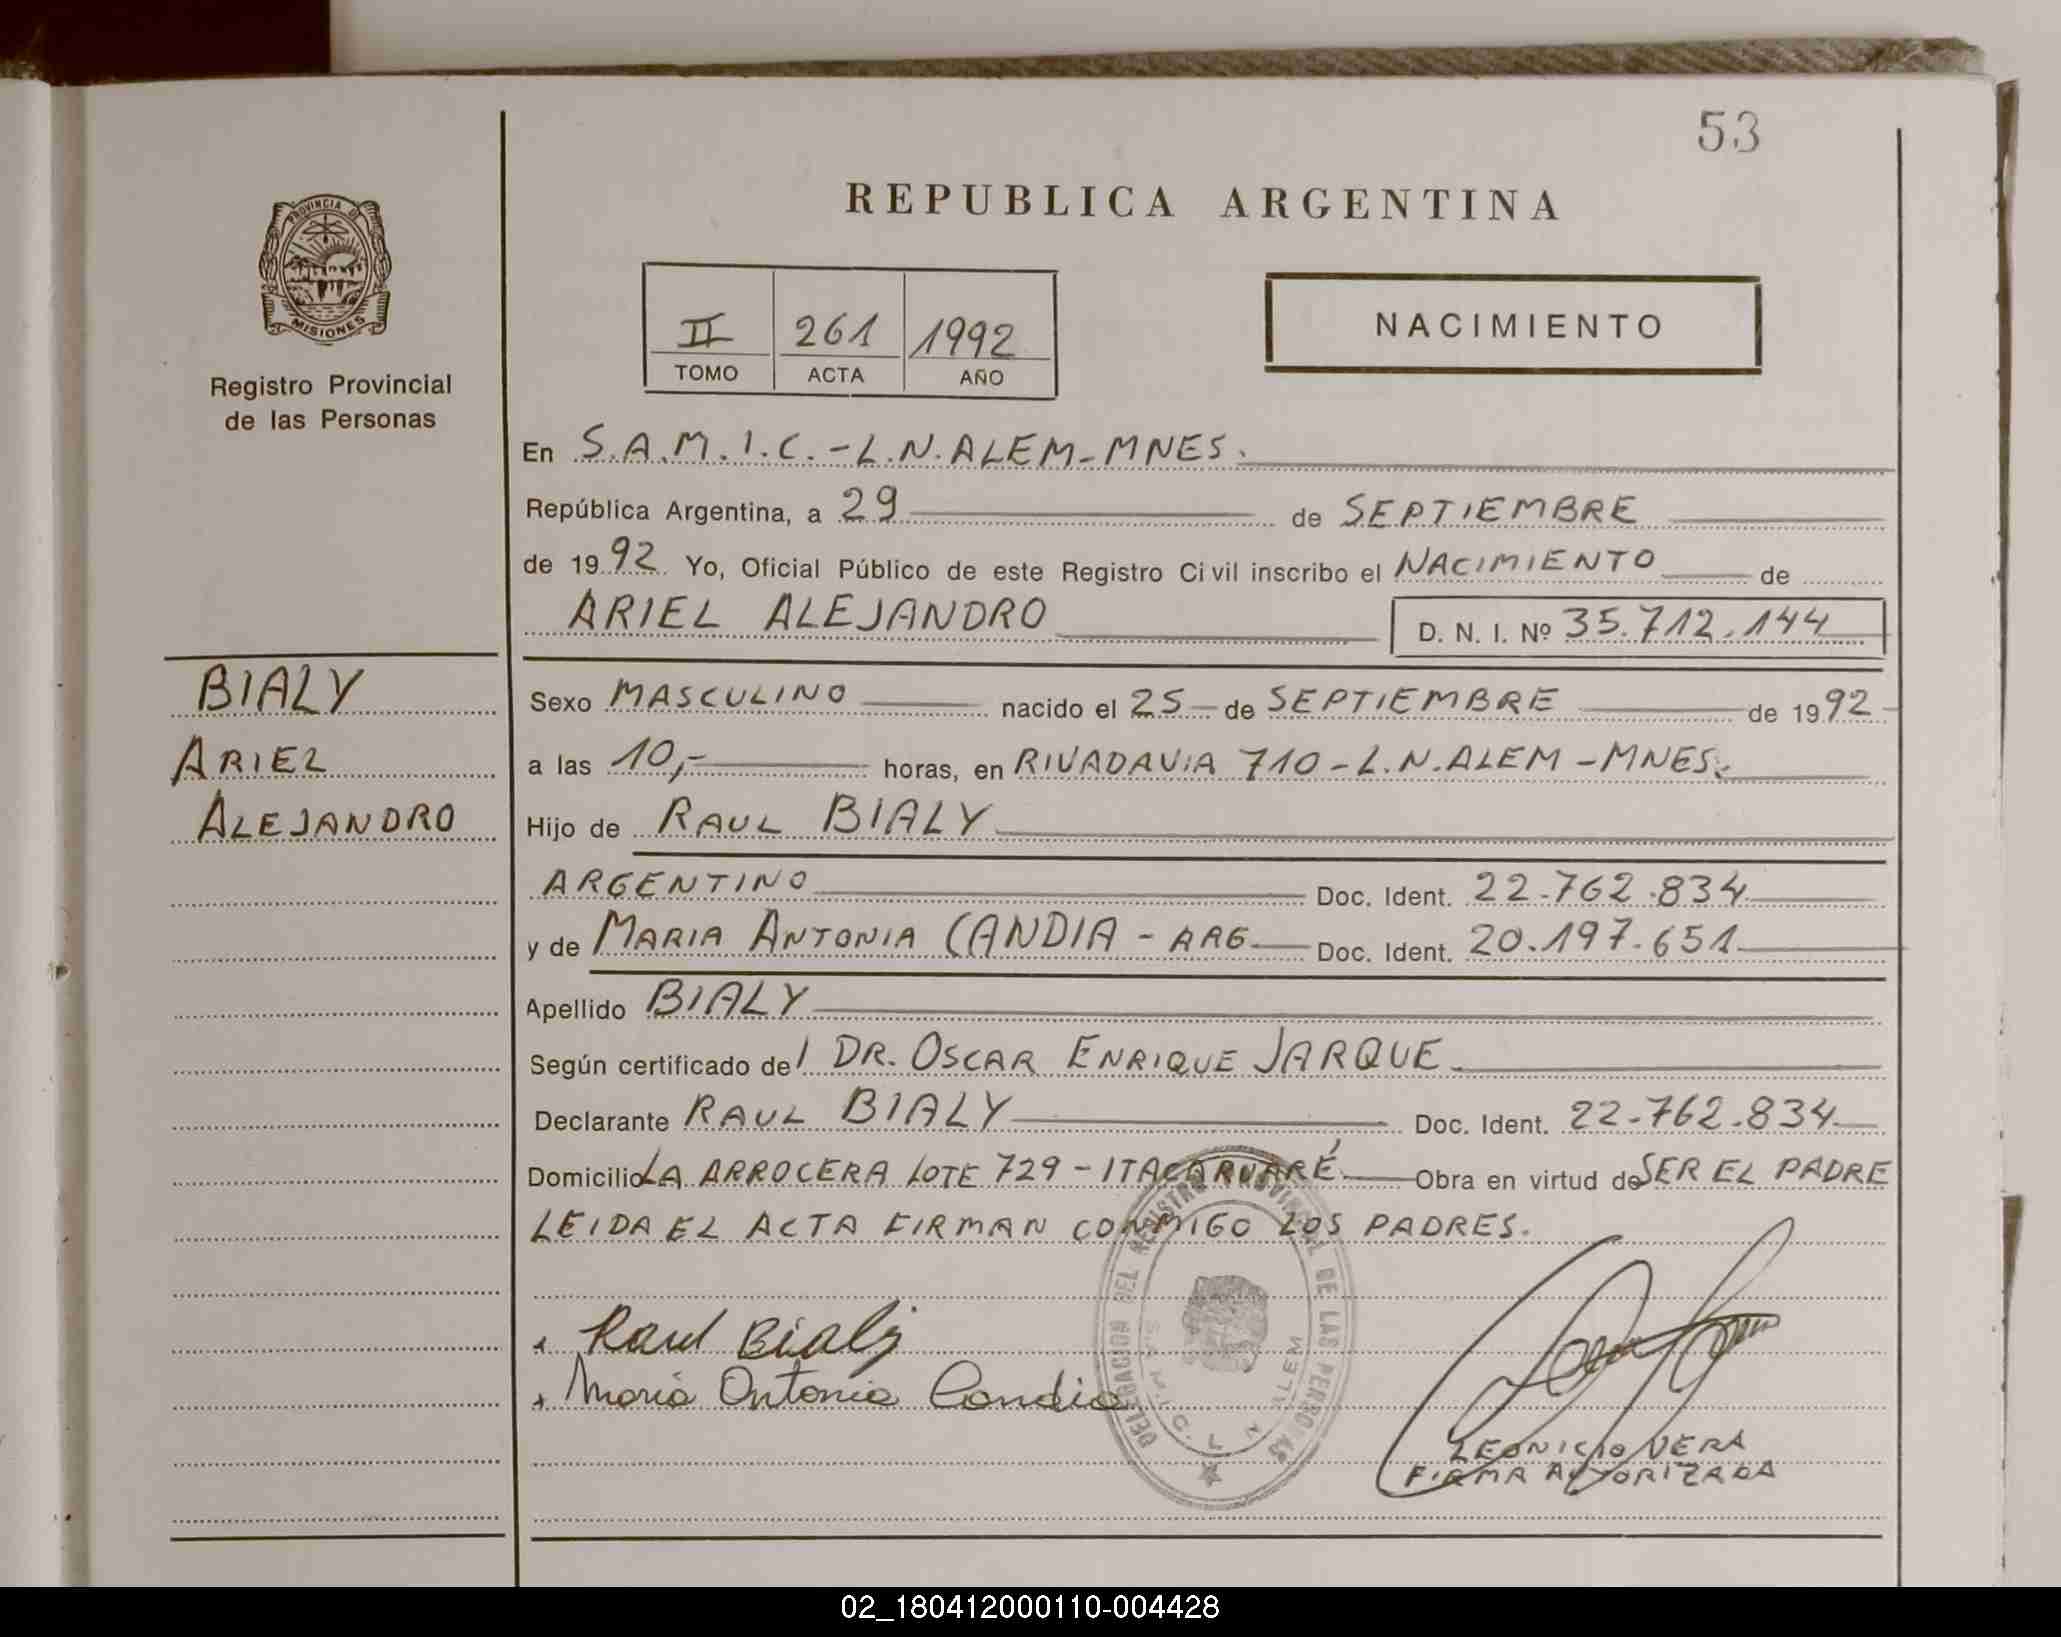 53
REPUBLICA ARGENTINA
PROVINCIA DE
MISIONES
Registro Provincial
de las Personas
II 261 1992
TOMO ACTA AÑO
NACIMIENTO
En S.A.M.I.C.-L.N.ALEM-MNES.
República Argentina, a 29 de SEPTIEMBRE
de 1992 Yo, Oficial Público de este Registro Civil inscribo el NACIMIENTO de
ARIEL ALEJANDRO D. N. I. Nº 35.712.144
BIALY
ARIEL
ALEJANDRO
Sexo MASCULINO nacido el 25 de SEPTIEMBRE de 1992
a las 10,- horas, en RIVADAVIA 710-L.N.ALEM-MNES.
Hijo de RAUL BIALY
ARGENTINO Doc. Ident. 22.762.834
y de MARIA ANTONIA CANDIA - ARG. Doc. Ident. 20.197.651
Apellido BIALY
Según certificado del DR. OSCAR ENRIQUE JARQUE.
Declarante RAUL BIALY Doc. Ident. 22.762.834
Domicilio LA ARROCERA LOTE 729 - ITACARUARÉ Obra en virtud de SER EL PADRE
LEIDA EL ACTA FIRMAN CONMIGO LOS PADRES.
Raul Bialy
Maria Antonia Candia
DELEGACION DEL REGISTRO PROVINCIAL DE LAS PERSONAS
S.A.M.I.C. L N ALEM
LEONICIO VERA
FIRMA AUTORIZADA
02_180412000110-004428